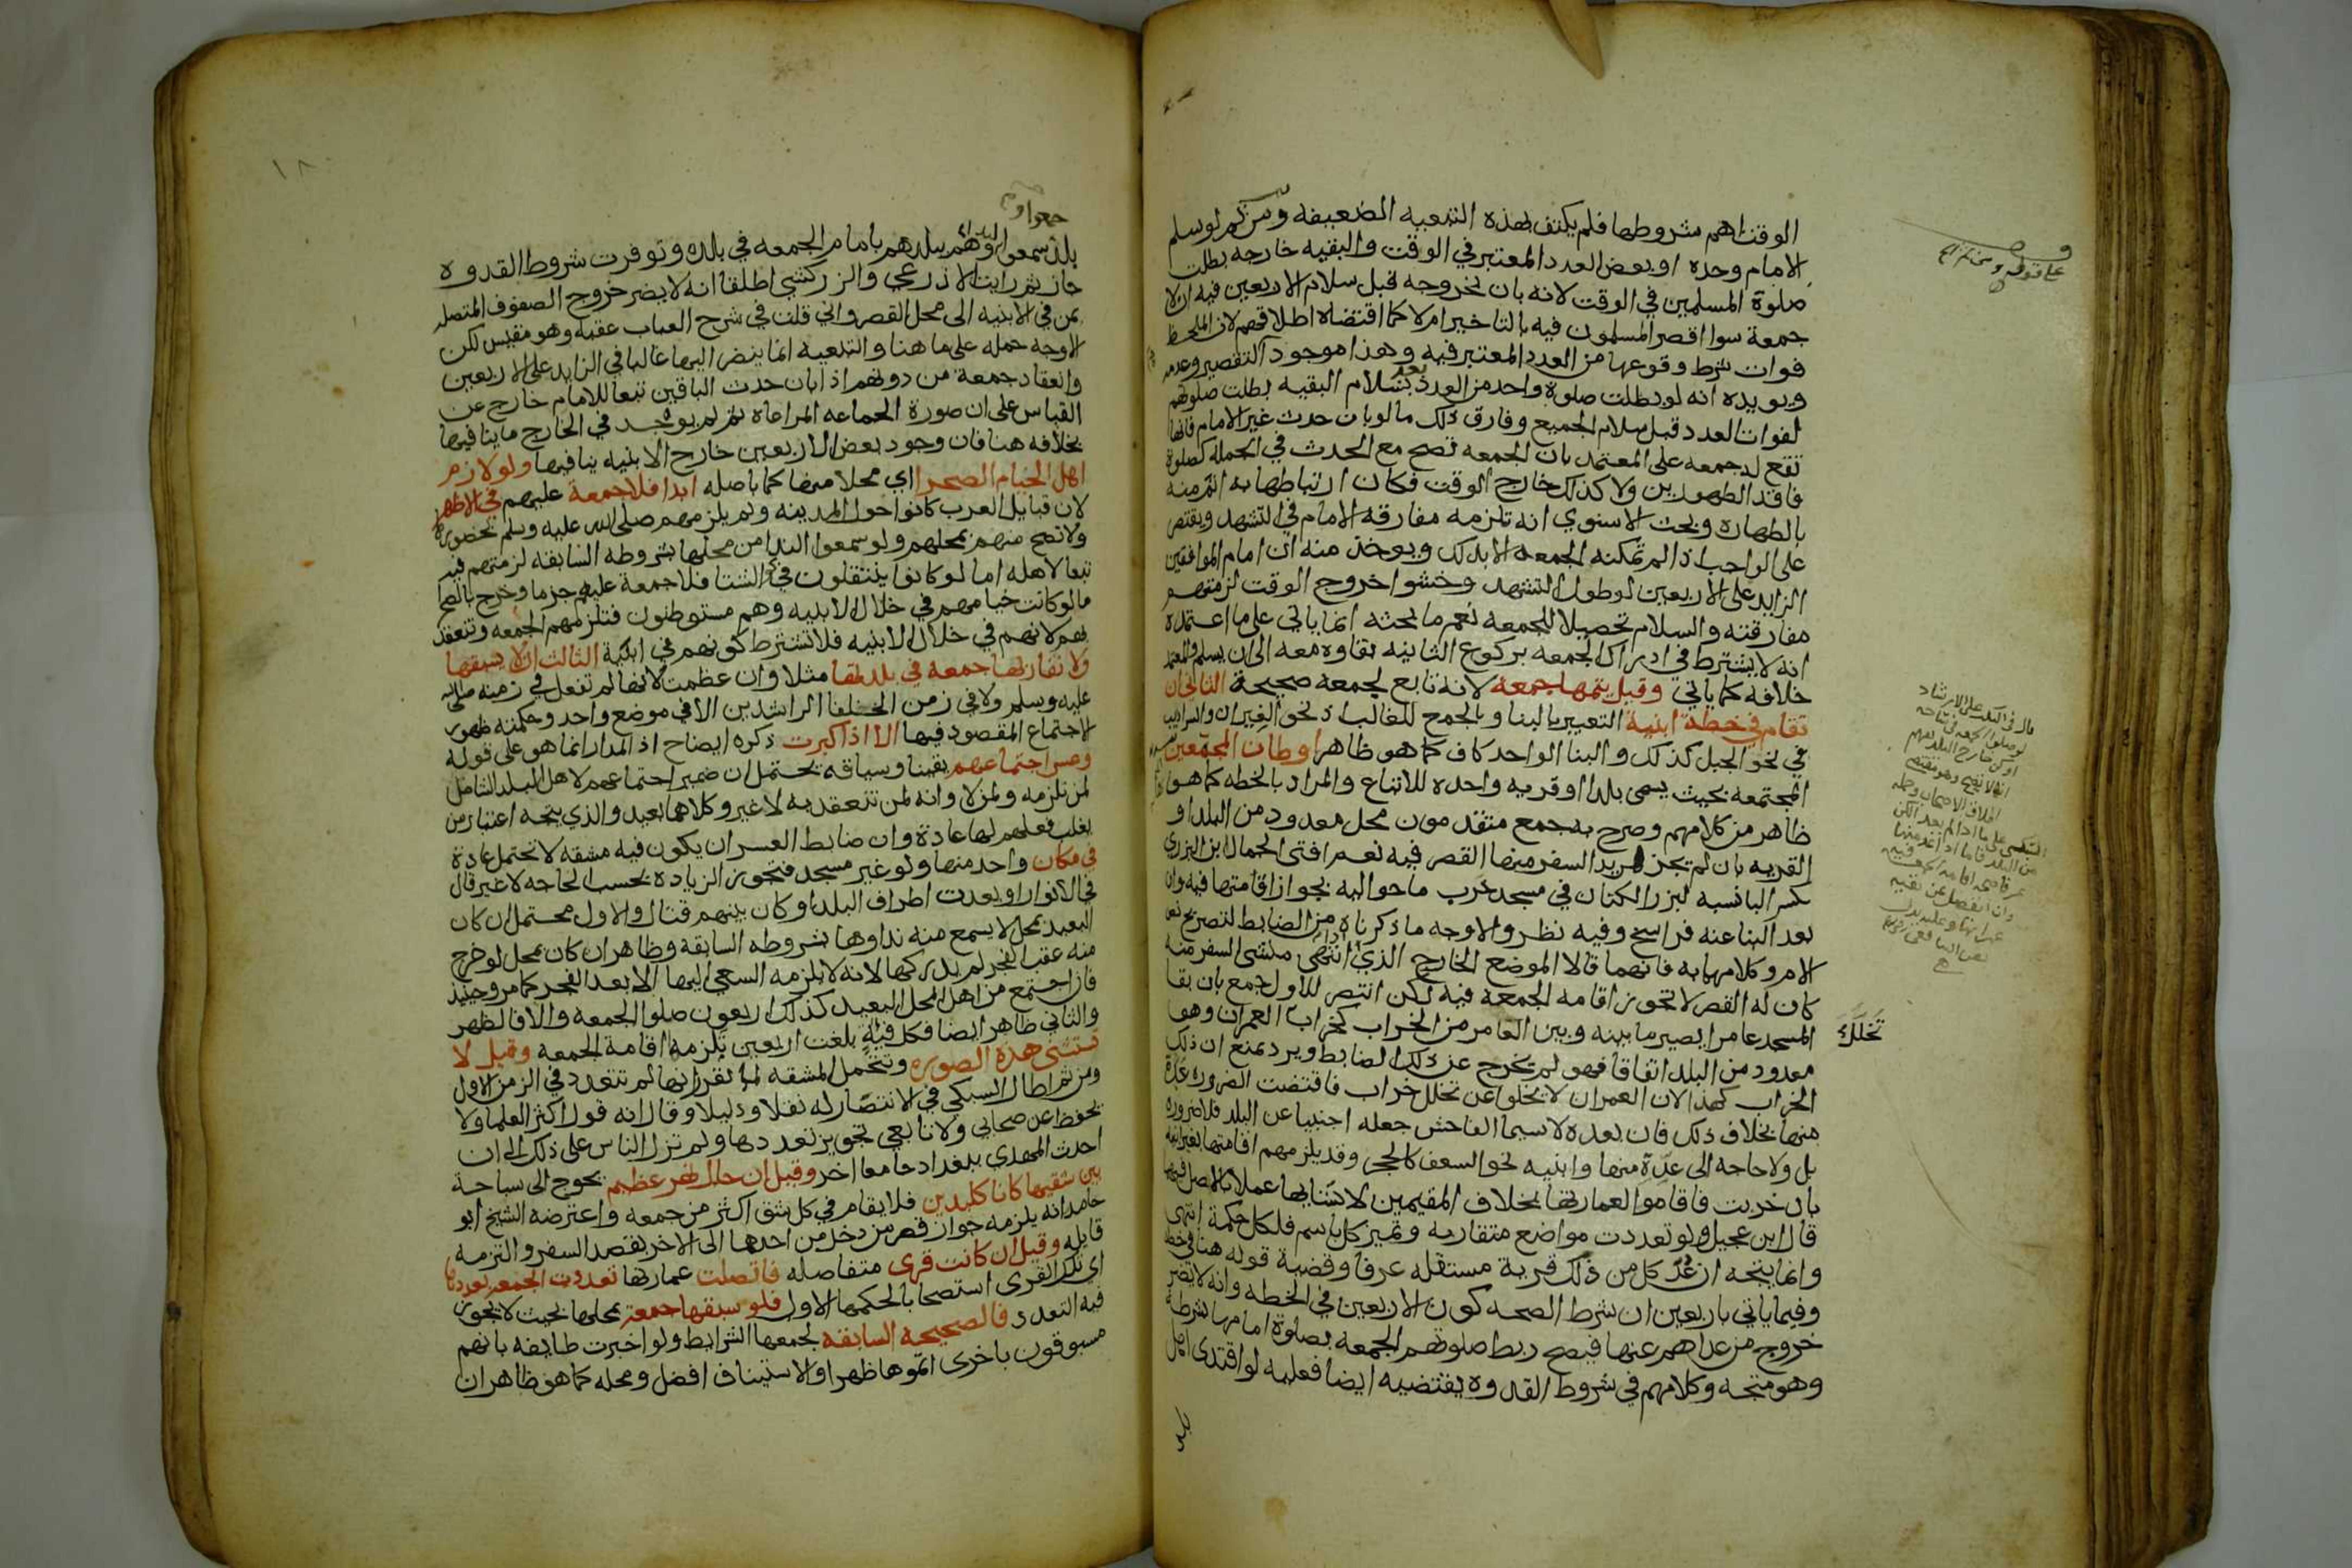 الوقت اهم شروطها فلم يكتف بهذه التبعيه الضعيفه ومن ثم لو سلم
الامام وحده او بعض العدد المعتبر في الوقت والبقيه خارجه بطلت
صلوة المسلمين في الوقت لانه بان بخروجه قبل سلام الاربعين فيه ان لا
جمعة سوا اقصر المسلمون فيه بالتاخير ام لا كما اقتضاه اطلاقهم لان الملحظ
فوات شرط وقوعها من العدد المعتبر فيه وهذا موجود التقصير وعدمه
ويويده انه لو بطلت صلوة واحد من العدد بعد سلام البقيه بطلت صلوتهم
لفوات العدد قبل سلام الجميع وفارق ذلك ما لو بان حدث غير الامام فانها
تقع له جمعه على المعتمد بان الجمعه تصح مع الحدث في الجملة كصلوة
فاقد الطهورين ولا كذلك خارج الوقت فكان ارتباطها به اتم منه
بالطهاره وبحث الاسنوي انه تلزمه مفارقه الامام في التشهد ويقتصر
على الواجب اذ لم تمكنه الجمعه الا بذلك ويوخذ منه ان امام الموافقين
الزايد على الاربعين لو طول التشهد وخشوا خروج الوقت لزمتهم
مفارقته والسلام تحصيلا للجمعه نعم ما بحثه انما ياتي على ما اعتمده
انه لا يشترط في ادراك الجمعه بركوع الثانيه بقاوه معه الى ان يسلم والمعتمد
خلافه كما ياتي وقيل يتمها جمعه لانه تابع لجمعه صحيحة الثاني ان
تقام في خطة ابنية التعبير بالبنا وبالجمع للغالب اذ نحو الغيران والسراديب
في نحو الجبل كذلك والبنا الواحد كاف كما هو ظاهر اوطان المجمعين
المجتمعه بحيث يسمى بلدا او قريه واحده للاتباع والمراد بالخطه كما هو
ظاهر من كلامهم وصرح به جمع متقدمون محل معدود من البلد او
القريه بان لم تجز لمريد السفر منها القصر فيه نعم افتى الجمال ابن البزري
بكسر البا نسبه لبزر الكتان في مسجد خرب ما حواليه بجواز اقامتها فيه وان
بعد البنا عنه فراسخ وفيه نظر والاوجه ما ذكرناه من الضابط لتصريح نص
الام وكلامهما به فانهما قالا الموضع الخارج الذي اذا انتهى منشئ السفر منه
كان له القصر لا تجوز اقامه الجمعه فيه لكن انتصر للاول جمع بان بقا
المسجد عامرا يصير ما بينه وبين العامر من الخراب كخراب العمران وهو
معدود من البلد اتفاقا فهو لم يخرج عن ذلك الضابط ويرد بمنع ان ذلك
الخراب كهذا لان العمران لا يخلو عن تخلل خراب فاقتضت الضروره عده
منها بخلاف ذلك فان بعده لاسيما الفاحش جعله اجنبيا عن البلد فلا ضروره
بل ولا حاجه الى عدّه منها وابنيه نحو السعف كالحجر وقد يلزمهم اقامتها بغير ابنيه
بان خربت فاقاموا لعمارتها بخلاف المقيمين لانشائها عملا بالاصل فيهما
قال ابن عجيل ولو تعددت مواضع متقاربه وتميز كل باسم فلكل حكمه انتهى
وانما يتجه ان عُدّ كل من ذلك قرية مستقله عرفا وقضية قوله هنا في خطة
وفيما ياتي باربعين ان شرط الصحه كون الاربعين في الخطه وانه لا يضر
خروج من عداهم عنها فيصح ربط صلوتهم الجمعه بصلوة امامها بشرطه
وهو متجه وكلامهم في شروط القدوه يقتضيه ايضا فعليه لو اقتدى اهل
بلد
على قوله ومن ثم الخ
تَخَلُّلَ
١٨٠
بلد سمعوا وهم ببلدهم بامام الجمعه في بلده وتوفرت شروط القدوه
جاز ثم رايت الاذرعي والزركشي اطلقا انه لا يضر خروج الصفوف المتصله
بمن في الابنيه الى محل القصر واني قلت في شرح العباب عقبه وهو مقيس لكن
الاوجه حمله على ما هنا والتبعيه انما ينضر اليها غالبا في الزايد على الاربعين
وانعقاد جمعة من دونهم اذا بان حدث الباقين تبعا للامام خارج عن
القياس على ان صورة الجماعه المراعاة ثم لم يوجد في الخارج ما ينافيها
بخلافه هنا فان وجود بعض الاربعين خارج الابنيه ينافيها ولو لازم
اهل الخيام الصحرا اي محلا منها كما باصله ابدا فلا جمعة عليهم في الاظهر
لان قبايل العرب كانوا حول المدينه ولم يلزمهم صلى الله عليه وسلم بحضورها
ولا تصح منهم بمحلهم ولو سمعوا الندا من محلها بشروطه السابقه لزمتهم فيه
تبعا لاهله اما لو كانوا ينتقلون في نحو الشتا فلا جمعة عليهم جزما وخرج بالصحرا
ما لو كانت خيامهم في خلال الابنيه وهم مستوطنون فتلزمهم الجمعه وتنعقد
بهم لانهم في خلال الابنيه فلا تشترط كونهم في ابنية الثالث ان لا يسبقها
ولا تقارنها جمعه في بلدتها مثلا وان عظمت لانها لم تفعل في زمنه صلى الله
عليه وسلم ولا في زمن الخلفا الراشدين الا في موضع واحد وحكمته ظهور
الاجتماع المقصود فيها الا اذا كبرت ذكره ايضاح اذ المدار انما هو على قوله
وعسر اجتماعهم يقينا وسياقه يحتمل ان ضمير اجتماعهم لاهل البلد الشامل
لمن تلزمه ولمن لا وانه لمن تنعقد به لا غير وكلاهما بعيد والذي يتجه اعتبار من
يغلب فعلهم لها عادة وان ضابط العسر ان يكون فيه مشقه لا تحتمل عادة
في مكان واحد منها ولو غير مسجد فتجوز الزياده بحسب الحاجه لا غير قال
في الانوار او بعدت اطراف البلد او كان بينهم قتال والاول محتمل ان كان
البعيد بمحل لا يسمع منه نداوها بشروطه السابقة وظاهر ان كان بمحل لو خرج
منه عقب الفجر لم يدركها لانه لا يلزمه السعي اليها الا بعد الفجر كما مر وحينئذ
فان اجتمع من اهل المحل البعيد كذلك اربعون صلوا الجمعه والا فالظهر
والثاني ظاهر ايضا فكل فيه بلغت اربعين تلزمه اقامة الجمعه وقيل لا
تستثنى هذه الصوره وتتحمل المشقه لما تقرر انها لم تتعدد في الزمن الاول
ومن ثم اطال السبكي في الانتصار له نقلا ودليلا وقال انه قول اكثر العلما ولا
يحفظ عن صحابي ولا تابعي تجويز تعددها ولم تزل الناس على ذلك الى ان
احدث المهدي ببغداد جامعا اخر وقيل ان حال نهر عظيم يحوج الى سباحة
بين شقيها كانا كبلدين فلا يقام في كل شق اكثر من جمعه واعترضه الشيخ ابو
حامد انه يلزمه جواز قصر من دخل من احدها الى الاخر بقصد السفر والتزمه
قايله وقيل ان كانت قرى متفاصله فاتصلت عمارتها تعددت الجمعه بعددها
اي تلك القرى استصحابا لحكمها الاول فلو سبقها جمعة بمحلها بحيث لا يجوز
فيه التعدد فالصحيحه السابقه لجمعها الشرايط ولو اخبرت طايفه بانهم
مسبوقون باخرى اتموها ظهرا والاستيناف افضل ومحله كما هو ظاهر ان